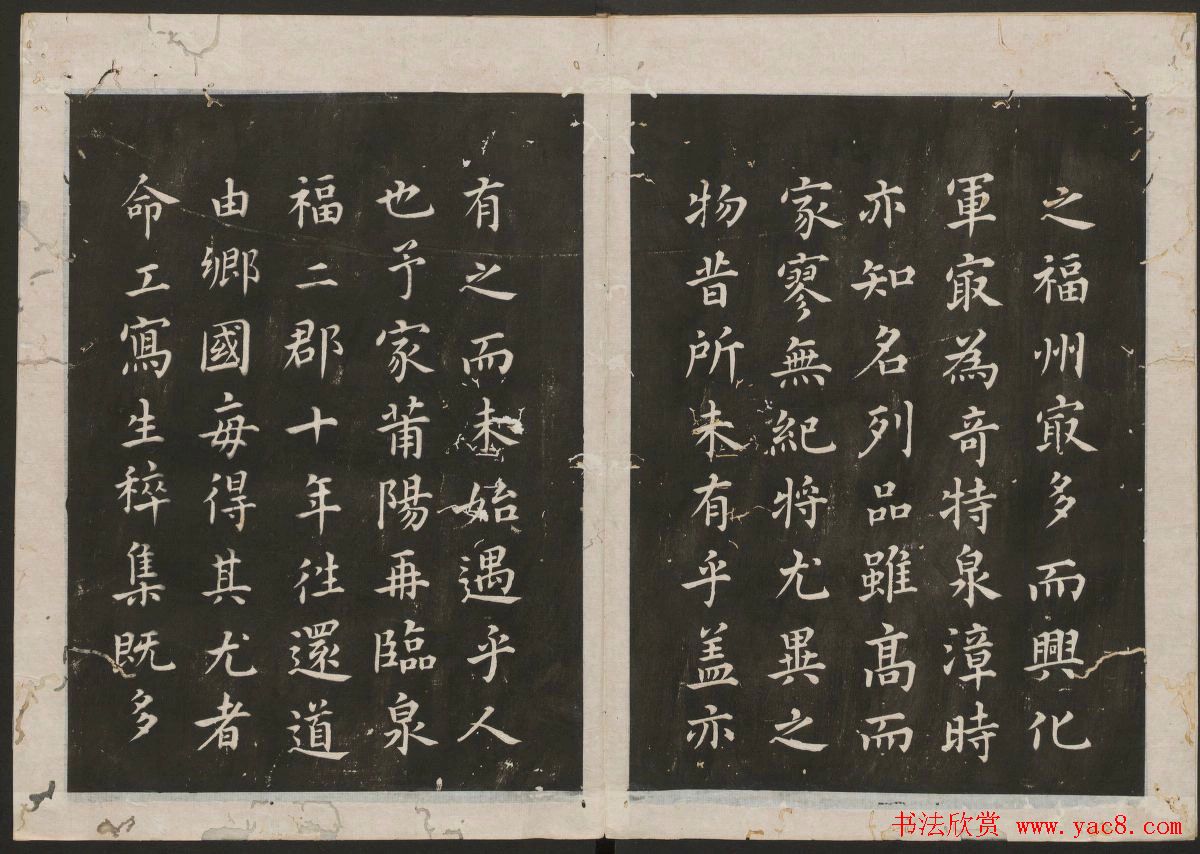 之福州冣多而興化
軍冣為竒特泉漳時
亦知名列品雖髙而
家寥無紀将尤異之
物昔所未有乎盖亦
有之而未始遇乎人
也予家莆陽再臨泉
福二郡十年徃還道
由鄉國每得其尤者
命工寫生稡集既多
书法欣赏 www.yac8.com